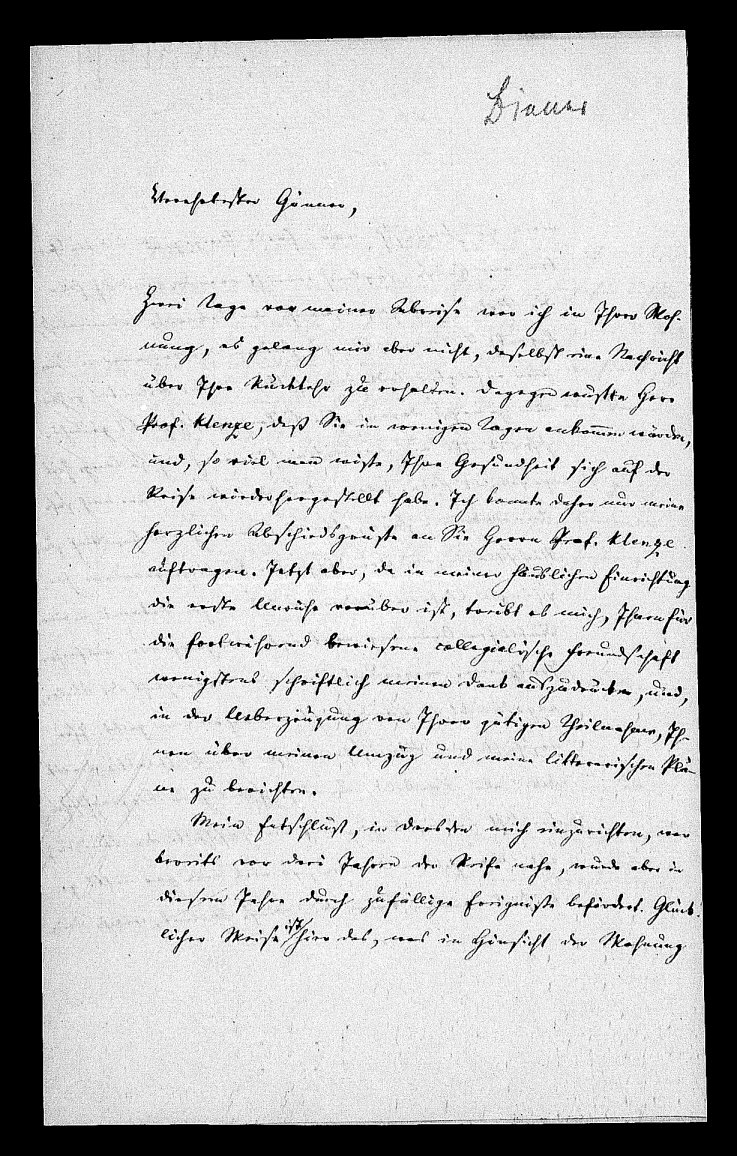 Diener
Verehrtester Gönner,
Zwei Tage vor meiner Abreise war ich in Ihrer Woh-
nung, es gelang mir aber nicht, daselbst eine Nachricht
über Ihre Rückkehr zu erhalten. Dagegen wußte Herr
Prof. Klenze, daß Sie in wenigen Tagen ankommen würden,
und, so viel man wißte, Ihre Gesundheit sich auf der
Reise wiederhergestellt habe. Ich konnte daher nur meine
herzlichen Abschiedsgrüße an Sie Herrn Prof. Klenze
auftragen. Jetzt aber, da in meiner häuslichen Einrichtung
die erste Unruhe vorüber ist, treibt es mich, Ihnen für
die fortwährend bewiesene collegialische Freundschaft
wenigstens schriftlich meinen Dank auszudrücken, und,
in der Ueberzeugung von Ihrer gütigen Theilnahme, Ih-
nen über meinen Umzug und meine litterarischen Plä-
ne zu berichten.
Mein Entschluß, in Dresden mich einzurichten, war
bereits vor drei Jahren der Reife nahe, wurde aber in
diesem Jahre durch zufällige Ereigniße befördert. Glück-
licher Weise ist hier das, was in Hinsicht der Wohnung